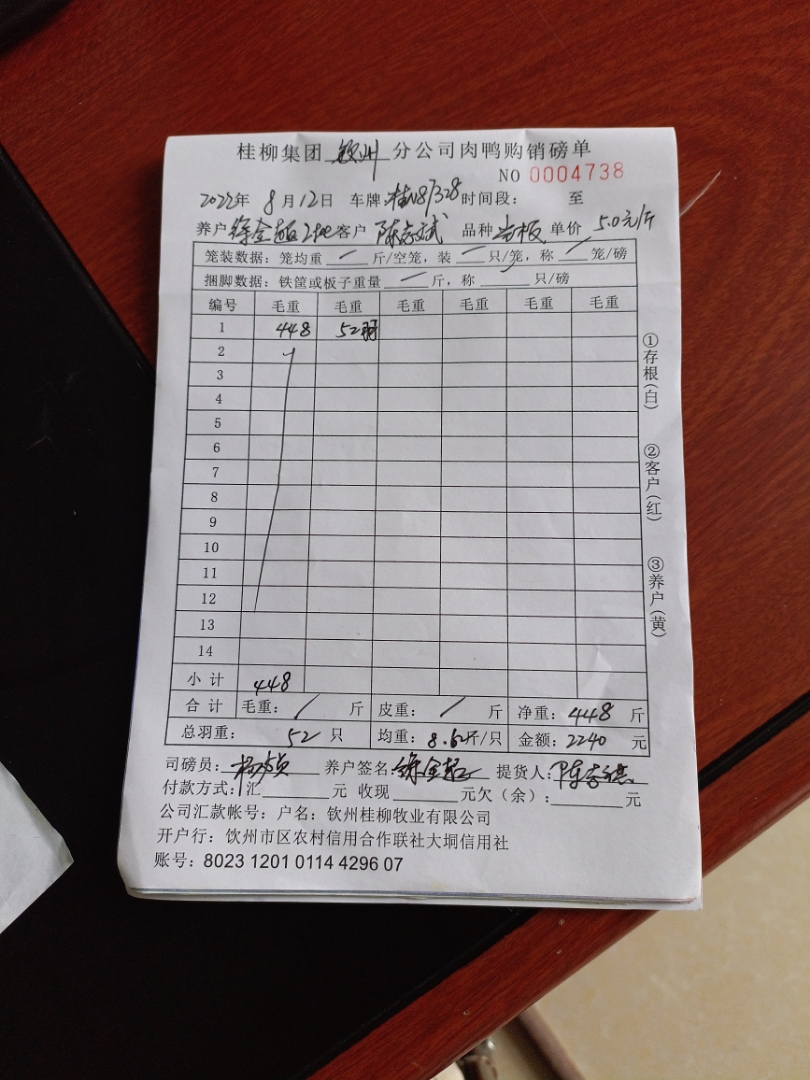 桂柳集团 钦州 分公司肉鸭购销磅单
NO 0004738
2022年 8月12日 车牌: 时间段: 至
养户 客户 品种 单价 5.0元/斤
笼装数据: 笼均重 / 斤/空笼, 装 / 只/笼, 称 / 笼/磅
捆脚数据: 铁筐或板子重量 / 斤, 称 只/磅
编号 毛重 毛重 毛重 毛重 毛重 毛重
1 448 52羽
2
3
4
5
6
7
8
9
10
11
12
13
14
小 计 448
合 计 毛重: / 斤 皮重: / 斤 净重: 448 斤
总羽重: 52 只 均重: 8.62斤/只 金额: 2240 元
司磅员: 养户签名: 徐金超 提货人:
付款方式: 汇 元 收现 元欠(余): 元
公司汇款帐号: 户名: 钦州桂柳牧业有限公司
开户行: 钦州市区农村信用合作联社大垌信用社
账号: 8023 1201 0114 4296 07
①存根(白)
②客户(红)
③养户(黄)